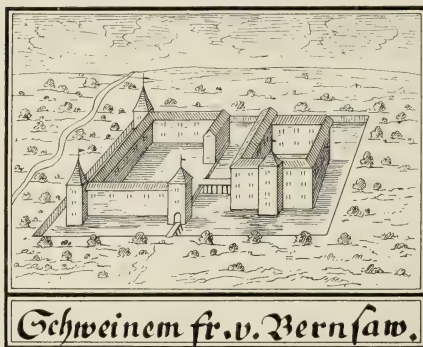 Schweinem fr. v. Bernſaw.